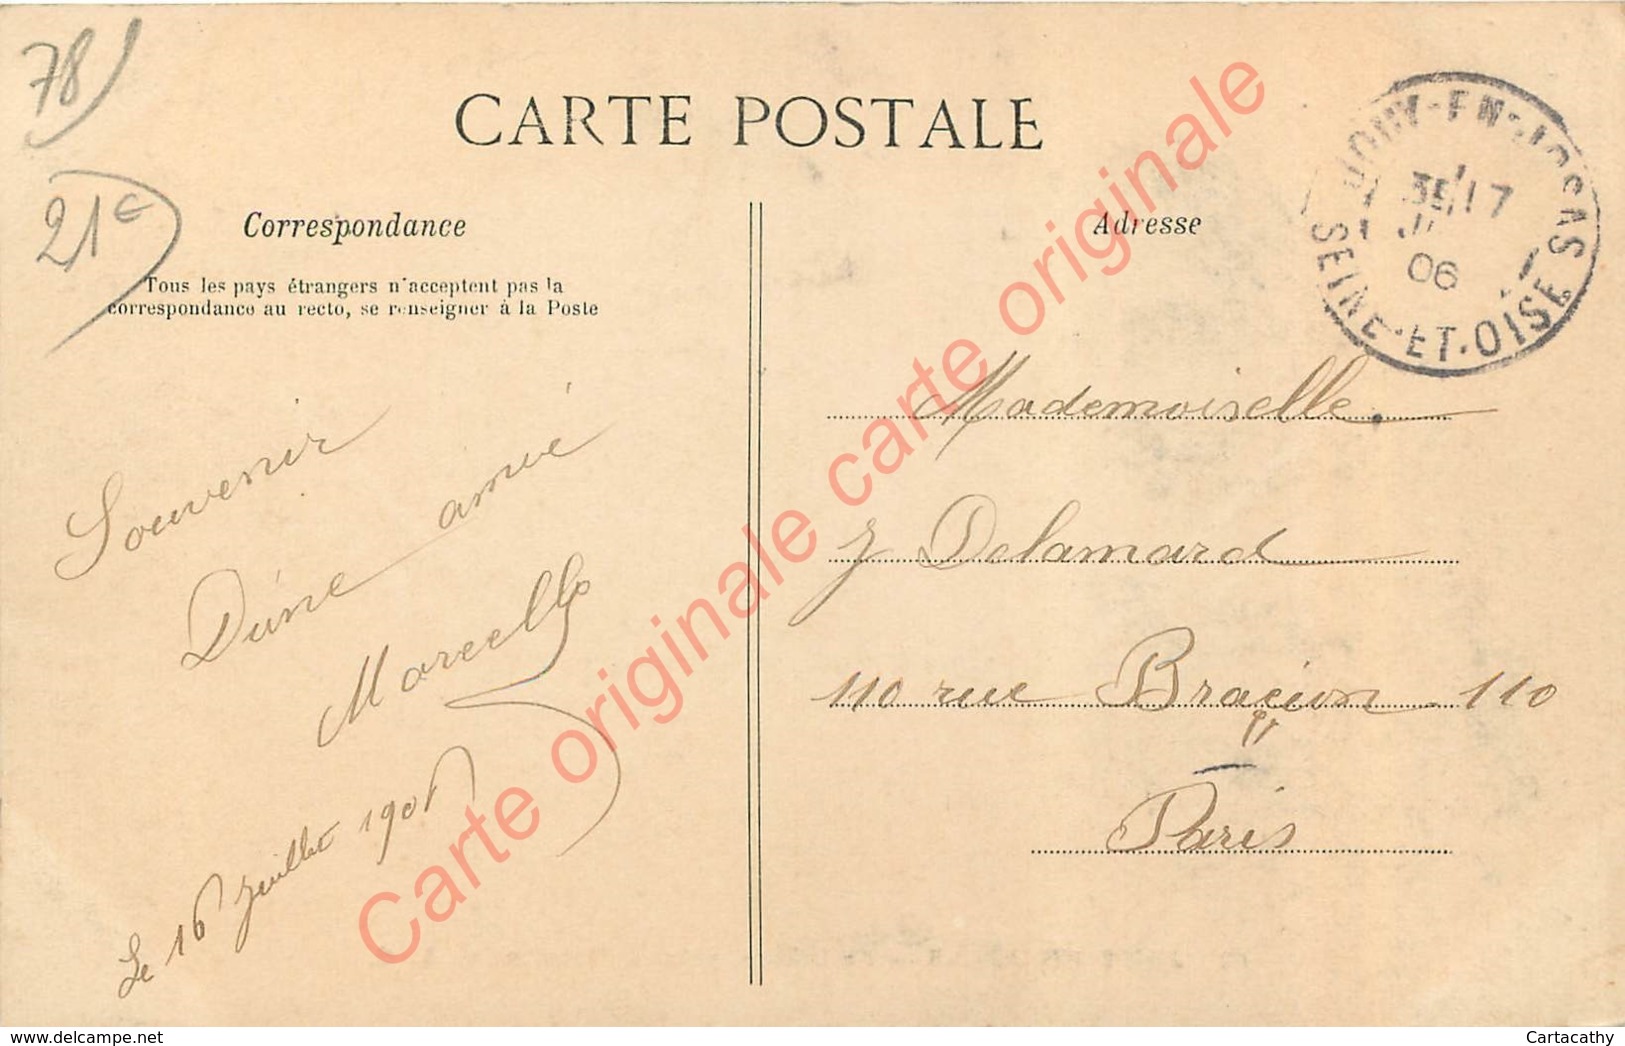 78
21€
CARTE POSTALE
Correspondance
Tous les pays étrangers n'acceptent pas la
correspondance au recto, se renseigner à la Poste
Souvenir
D'une amie
Marcelle
Le 16 juillet 1906
Adresse
JOUY-EN-JOSAS
17
06
SEINE-ET-OISE
Mademoiselle
J Delamard
110 rue Brancion 110
Paris
Carte originale carte originale carte originale
Cartacathy